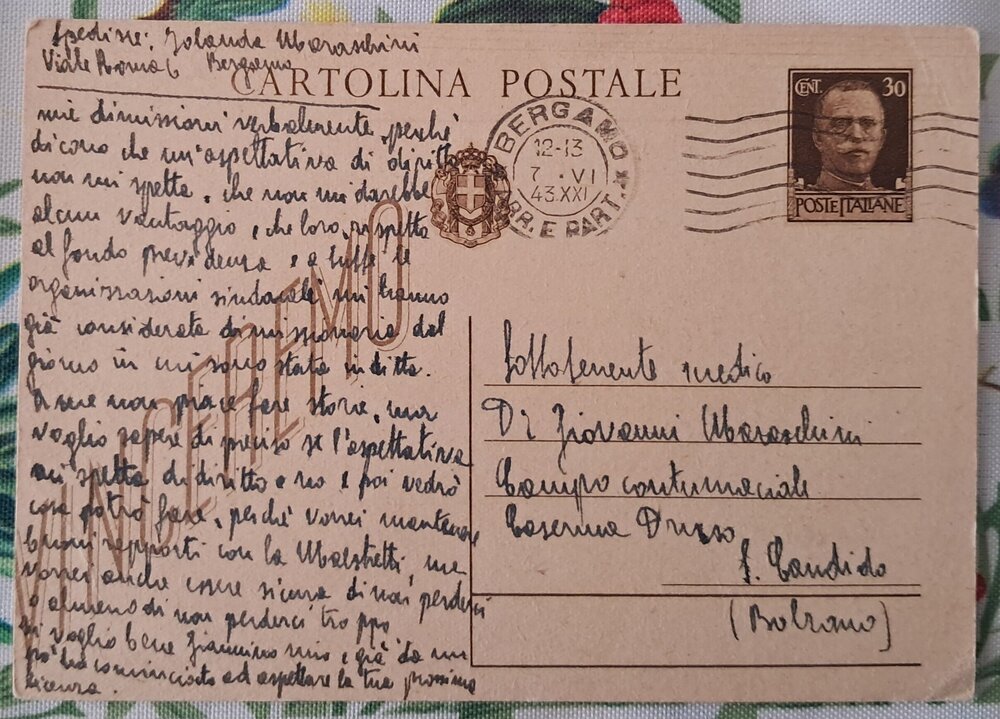 Spedisce: Jolanda Maraschini
Viale Roma 6 Bergamo
CARTOLINA POSTALE
CENT. 30
POSTE ITALIANE
BERGAMO
12-13
7 . VI
43.XXI
RR. E PART.
VINCEREMO
mie dimissioni verbalmente, perché
dicono che un'aspettativa di diritto
non mi spetta, che non mi darebbe
alcun vantaggio, che loro, rispetto
al fondo previdenza e a tutte le
organizzazioni sindacali mi hanno
già considerata dimissionaria dal
giorno in cui sono stata in ditta.
A me non piace fare storie, ma
voglio sapere di preciso se l'aspettativa
mi spetta di diritto o no e poi vedrò
cosa potrò fare, perché vorrei mantenere
buoni rapporti con la Maestretti, ma
vorrei anche essere sicura di non perderci
o almeno di non perderci troppo
Ti voglio bene Giannino mio, e già da un
po' ho cominciato ad aspettare la tua prossima
licenza.
Sottotenente medico
Dr Giovanni Maraschini
Campo contumaciale
Caserma Druso
S. Candido
(Bolzano)